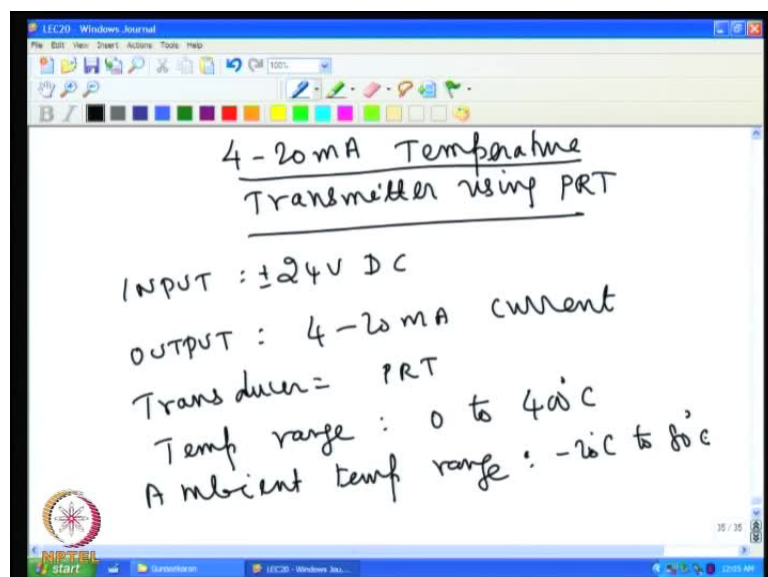 LEC20 - Windows Journal
File Edit View Insert Actions Tools Help
100%
B I
4-20mA Temperature
Transmitter using PRT
INPUT : ±24V DC
OUTPUT : 4-20mA current
Transducer = PRT
Temp range : 0 to 400°C
Ambient temp range : -20°C to 80°C
35 / 35
NPTEL
start
LEC20 - Windows Jou...
12:05 AM